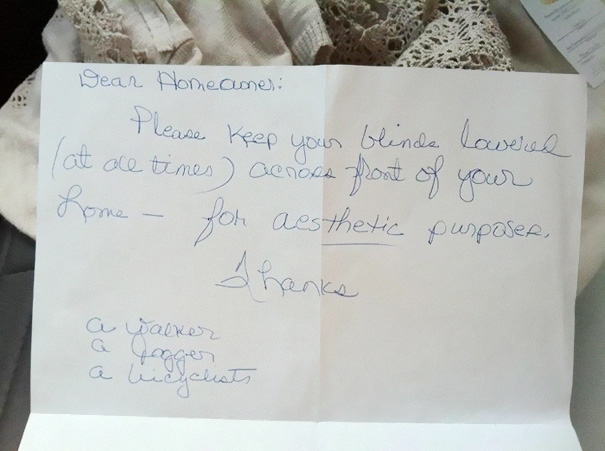 Dear Homeowner:
Please keep your blinds lowered
(at all times) across front of your
home – for aesthetic purposes.
Thanks
a walker
a jogger
a bicyclists